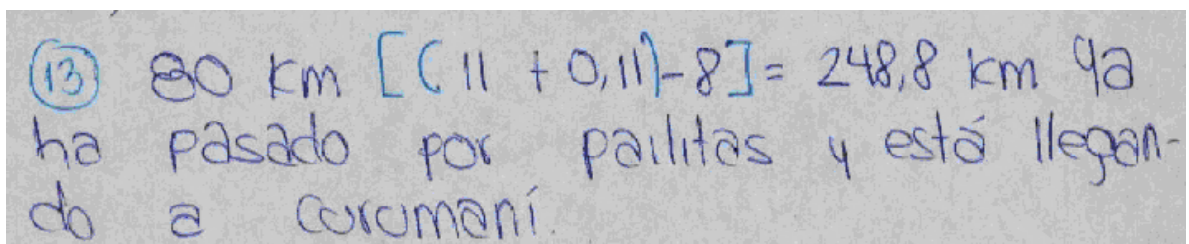 13 80 km [(11 + 0,11)-8] = 248,8 km ya
ha pasado por pailitas y está llegan-
do a curumaní.